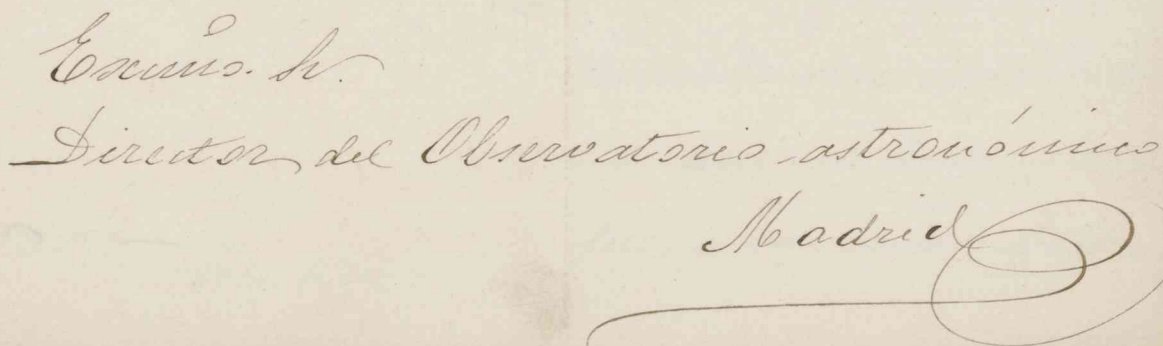 Excmo. Sr.
Director del Observatorio astronómico
Madrid